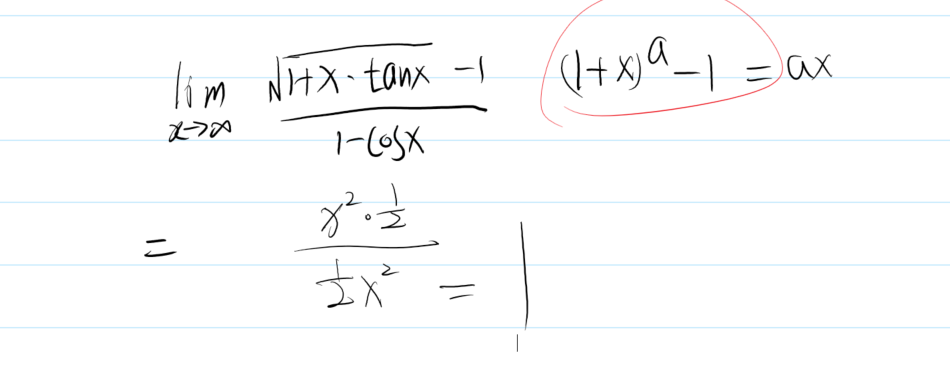 lim x→∞ (√(1+x·tanx) − 1)/(1−cosx)   (1+x)^a − 1 = ax
= (x²·1/2)/(1/2 x²) = 1